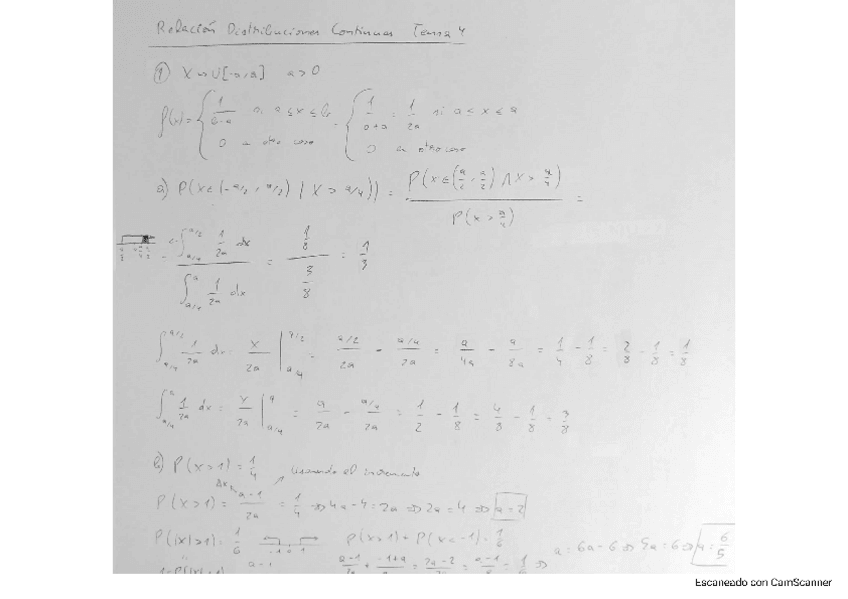 Relación Distribuciones Continuas Tema 4
① X ~> U[-a,a] a>0
f(x) = { 1/(b-a) si a ≤ x ≤ b = { 1/(a+a) = 1/2a si a ≤ x ≤ a
0 en otro caso 0 en otro caso
a) P(x ∈ (-a/2, a/2) | X > a/4)) = P(x ∈ (a/2, a/2) ∧ X > a/4) / P(x > a/4) =
= ∫_{a/4}^{a/2} 1/2a dx / ∫_{a/4}^{a} 1/2a dx = 1/8 / 3/8 = 1/3
∫_{a/4}^{a/2} 1/2a dx = x/2a |_{a/4}^{a/2} = a/2/2a - a/4/2a = a/4a - a/8a = 1/4 - 1/8 = 2/8 - 1/8 = 1/8
∫_{a/4}^{a} 1/2a dx = x/2a |_{a/4}^{a} = a/2a - a/4/2a = 1/2 - 1/8 = 4/8 - 1/8 = 3/8
b) P(x>1) = 1/4 usando el incremento
Δx
P(x>1) = a-1/2a = 1/4 => 4a-4 = 2a => 2a = 4 => a=2
P(|x|>1) = 1/6 -1 0 1 P(x>1) + P(x<-1) = 1/6
a-1/2a + -1+a/2a = 2a-2/2a = a-1/a = 1/6 => a = 6a-6 => 5a = 6 => a = 6/5
Escaneado con CamScanner